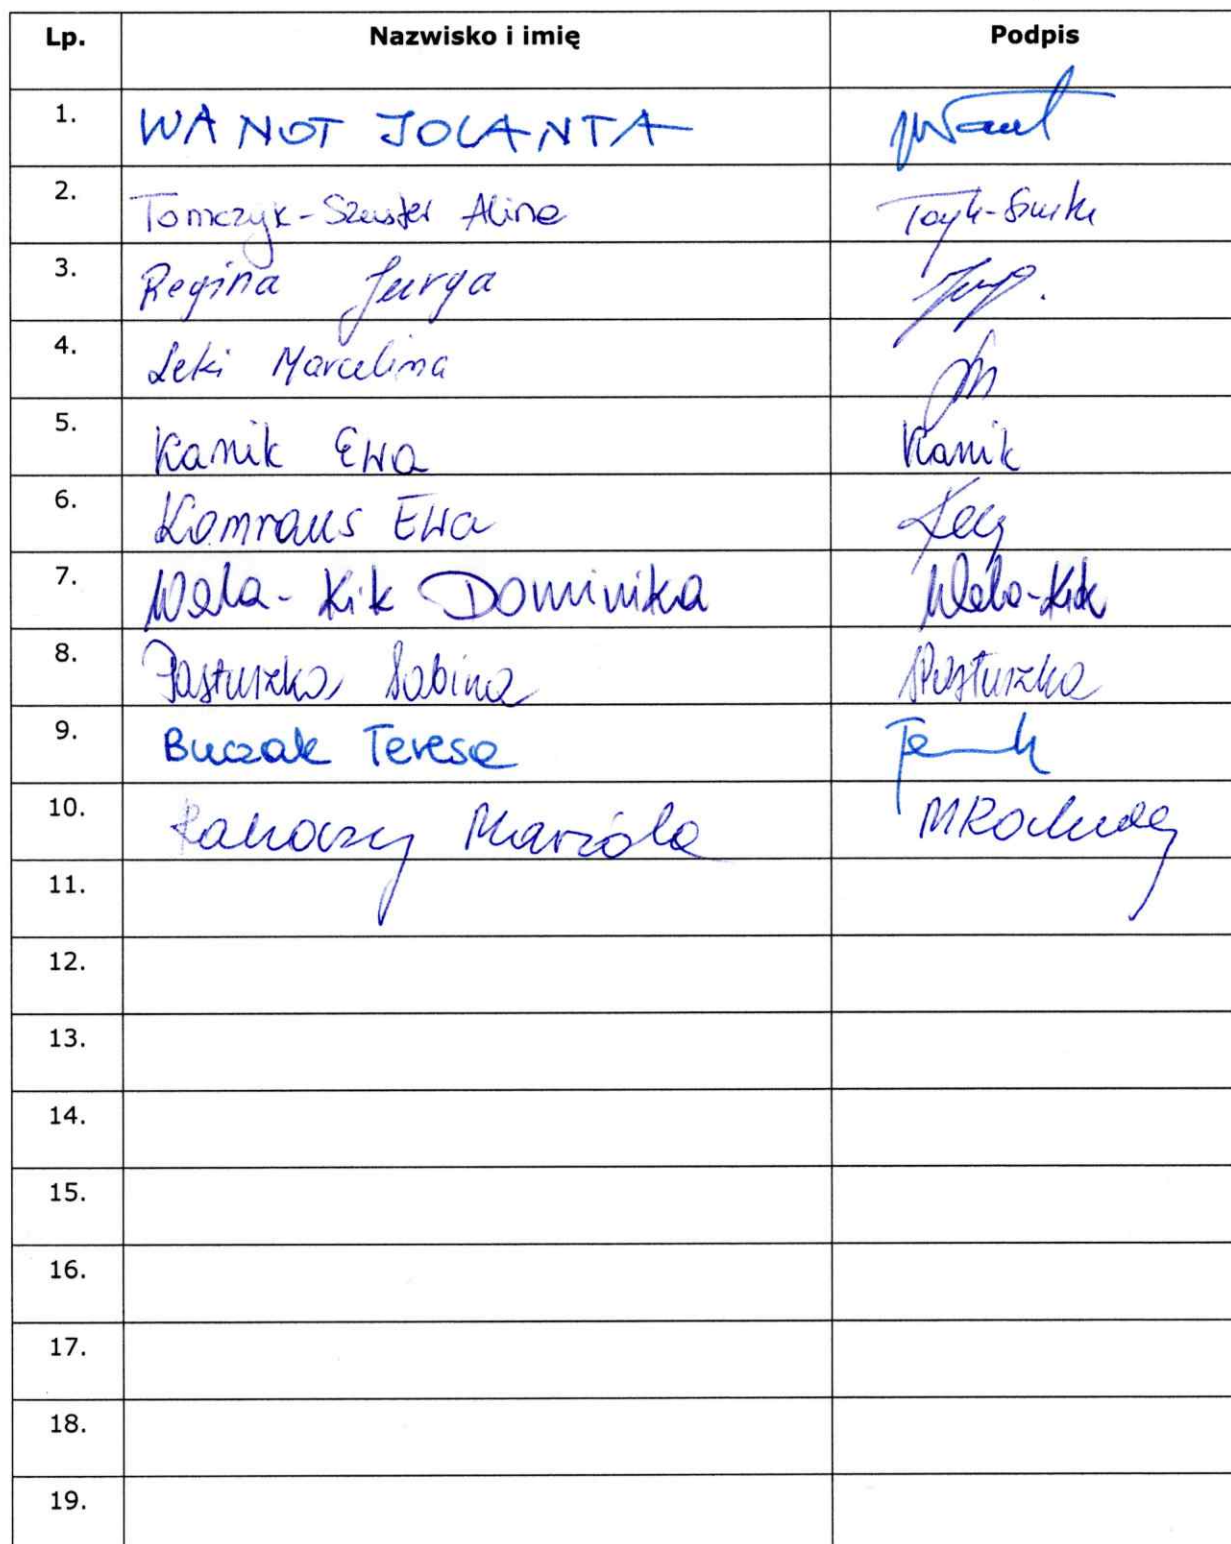 Lp. Nazwisko i imię Podpis
1. WANOT JOLANTA
2. Tomczyk-Szuster Alina
3. Regina Jurga
4. Leki Marcelina
5. Kanik Ewa Kanik
6. Komraus Ewa
7. Wala-Kik Dominika Wala-Kik
8. Pastuszka Sabina Pastuszka
9. Buczak Teresa
10. Mariola
11.
12.
13.
14.
15.
16.
17.
18.
19.